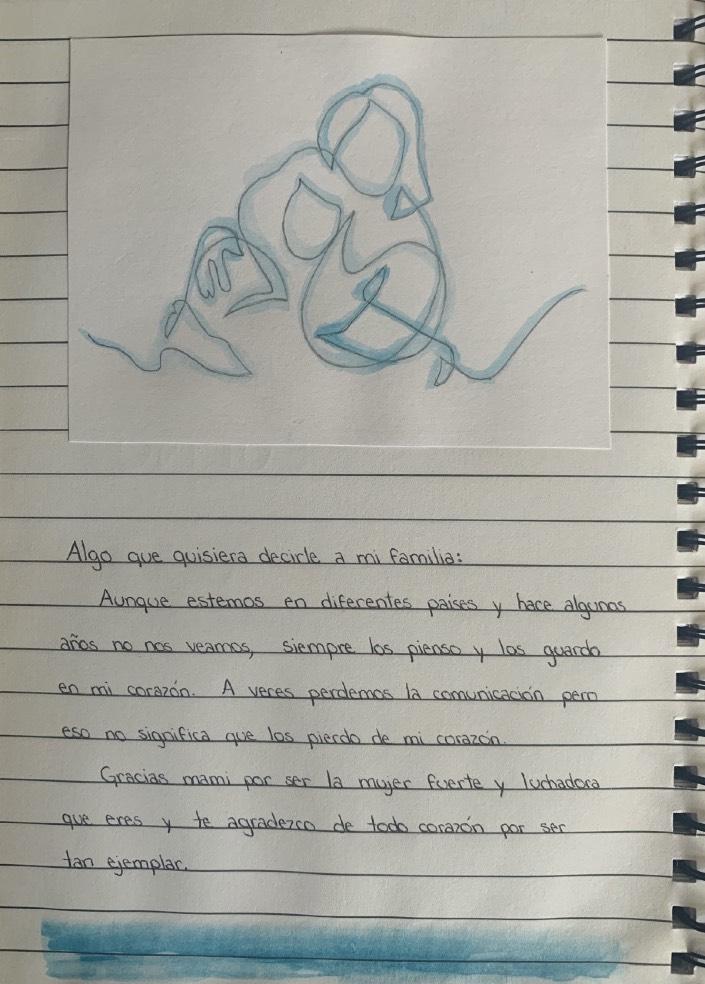 Algo que quisiera decirle a mi familia:
Aunque estemos en diferentes países y hace algunos
años no nos veamos, siempre los pienso y los guardo
en mi corazón. A veces perdemos la comunicación pero
eso no significa que los pierdo de mi corazón.
Gracias mami por ser la mujer fuerte y luchadora
que eres y te agradezco de todo corazón por ser
tan ejemplar.